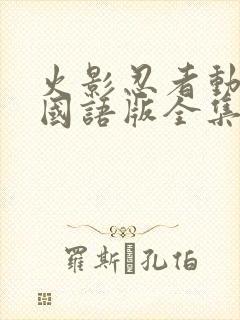 火影忍者動
國語版全集
羅斯 孔伯